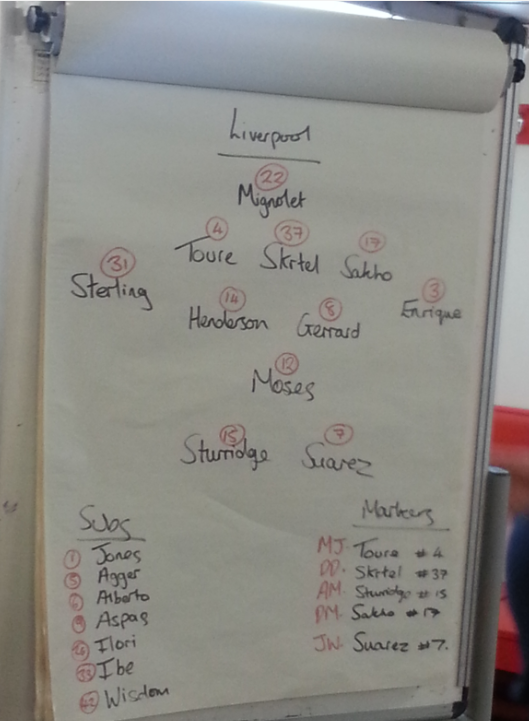 Liverpool
22
Mignolet
4 37 17
Toure Skrtel Sakho
31 3
Sterling Enrique
14 8
Henderson Gerrard
12
Moses
15 7
Sturridge Suarez
Subs
1 Jones
5 Agger
6 Alberto
9 Aspas
26 Ilori
33 Ibe
47 Wisdom
Markers
MJ. Toure # 4
DD. Skrtel # 37
AM. Sturridge # 15
DM. Sakho # 17
JW. Suarez # 7.